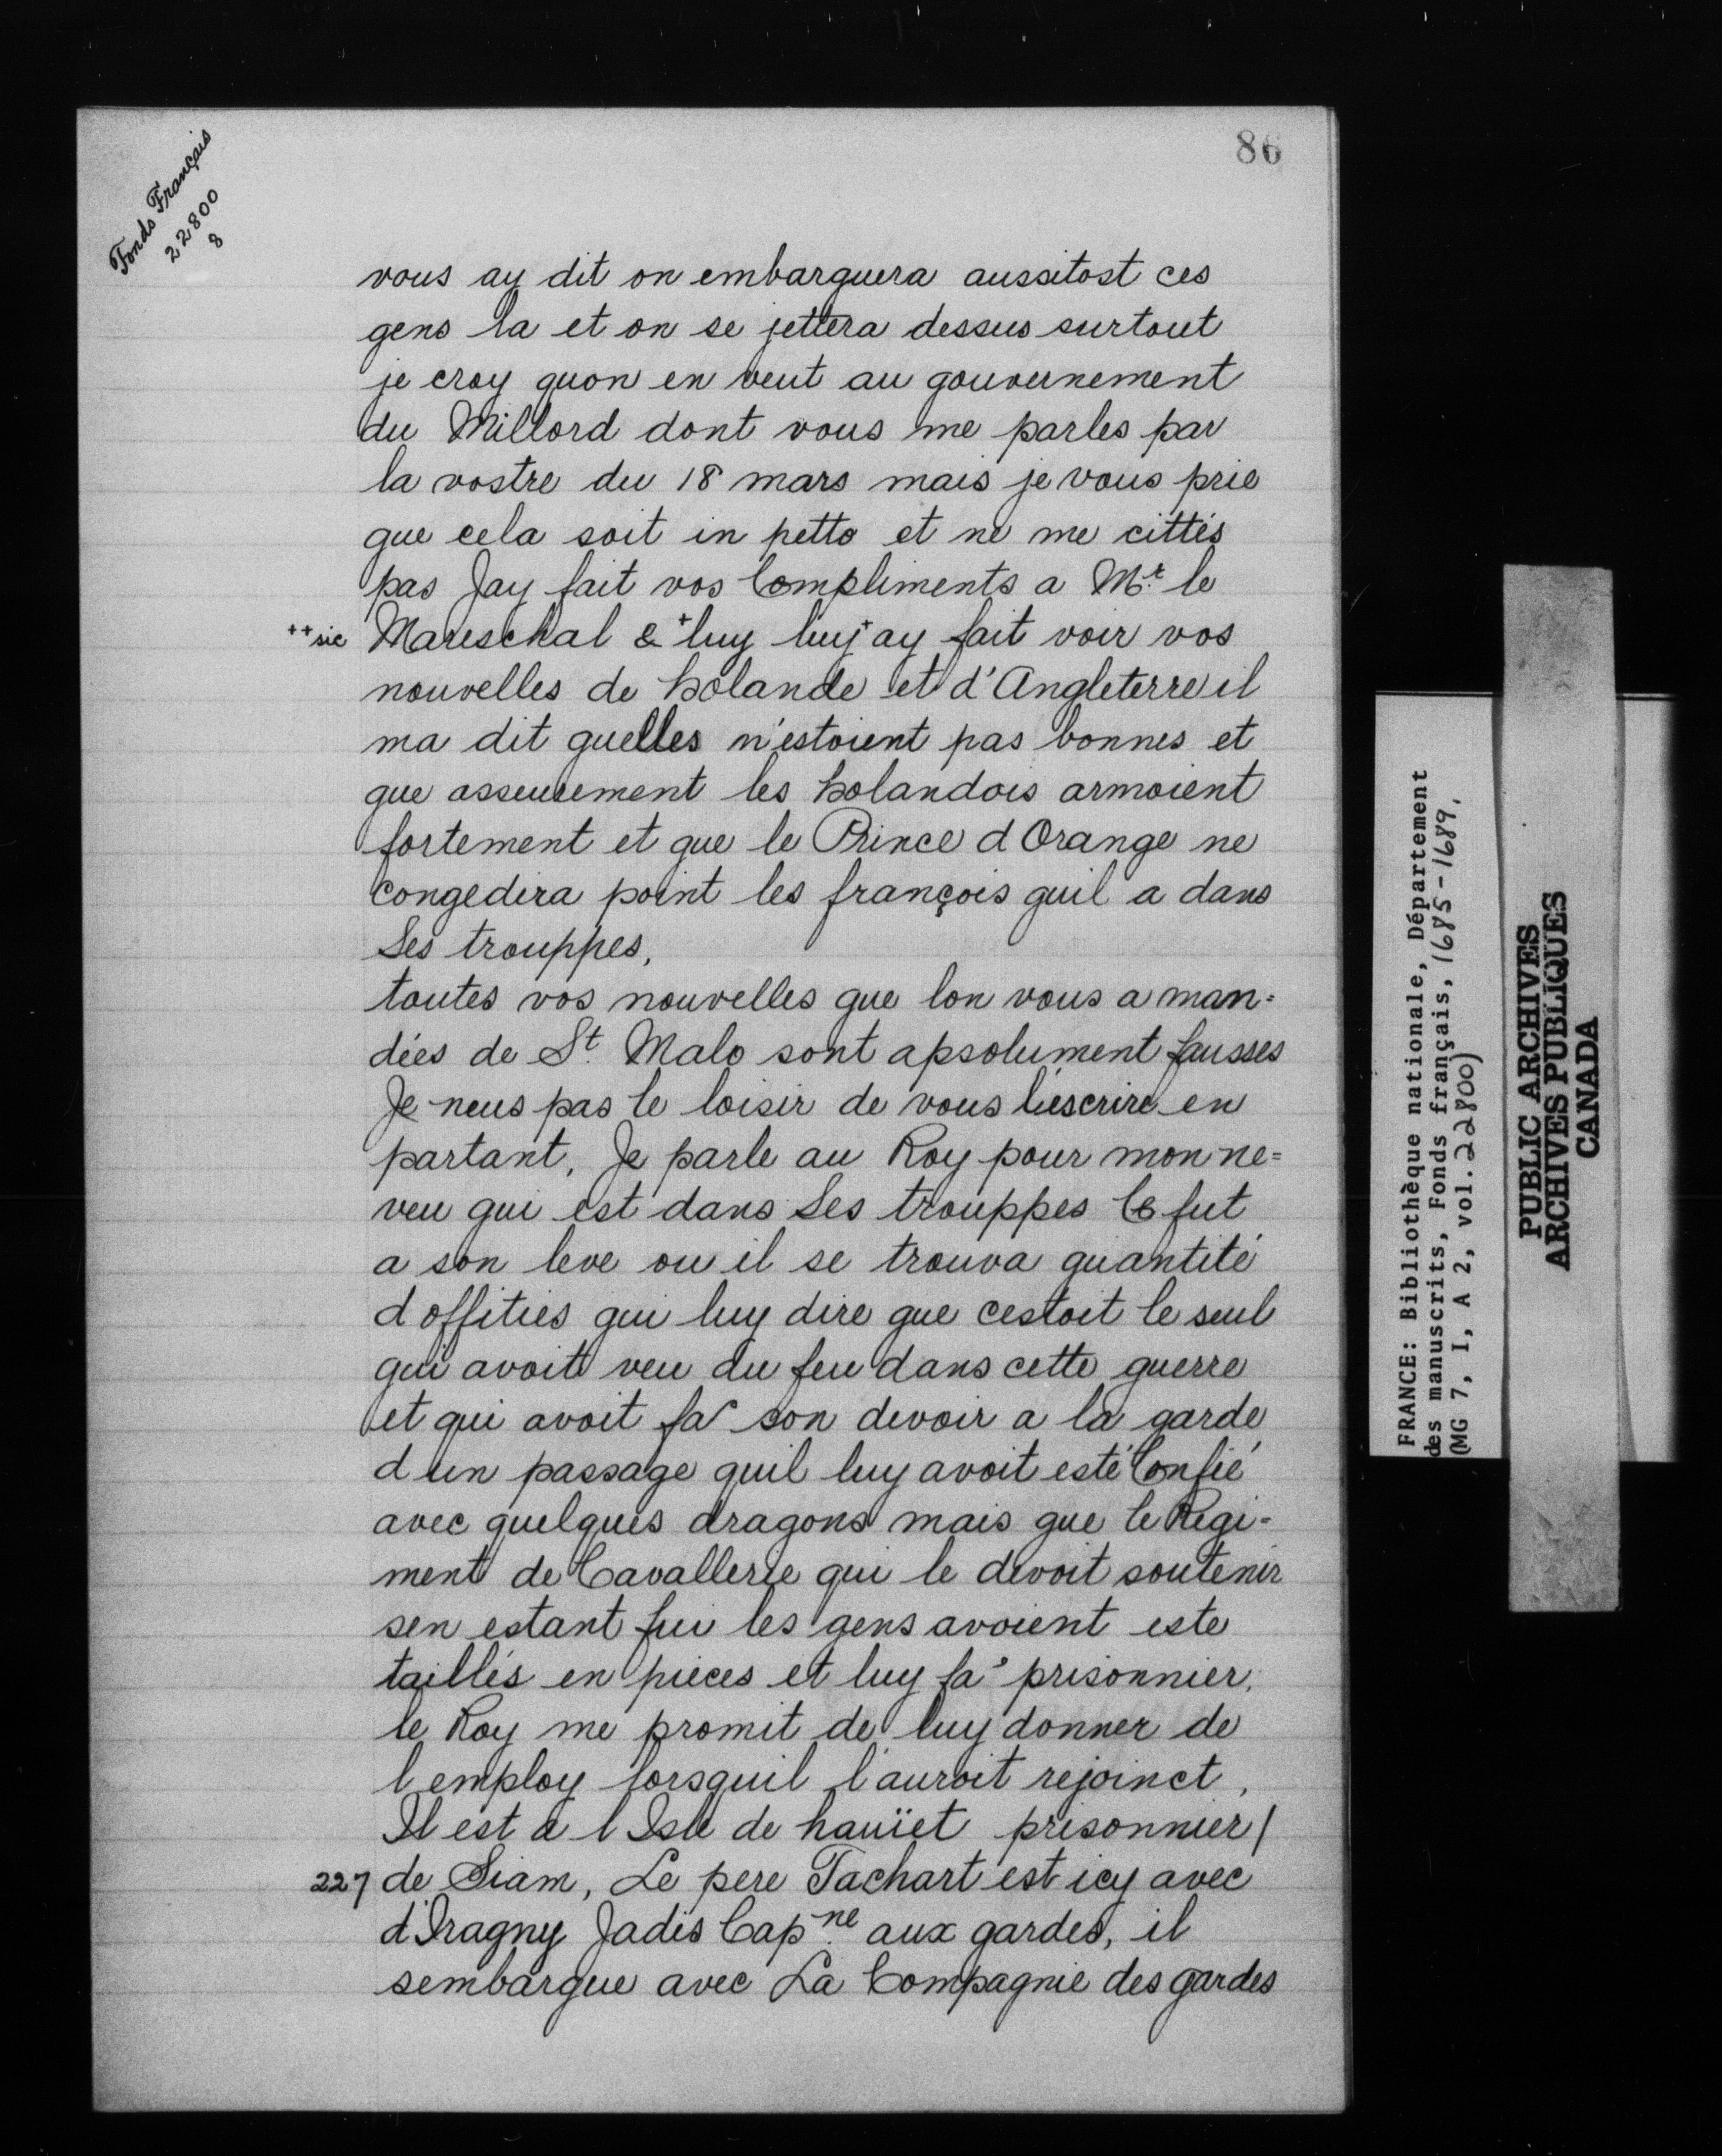 86
Fonds Français
22800
8
vous ay dit on embarquera aussitost ces
gens la et on se jettera dessus surtout
je croy quon en veut au gouvernement
du Millord dont vous me parles par
la vostre du 18 mars mais je vous prie
que cela soit in petto et ne me cittés
pas Jay fait vos Compliments a Mr. le
++sic Mareschal & +luy luy+ ay fait voir vos
nouvelles de holande et d'Angleterre il
ma dit quelles n'estoient pas bonnes et
que asseurement les holandois armoient
fortement et que le Prince d Orange ne
congedira point les françois quil a dans
Ses trouppes,
toutes vos nouvelles que lon vous a man=
dées de St. Malo sont apsolument fausses
Je neus pas le loisir de vous l'escrire en
partant, Je parle au Roy pour mon ne=
veu qui est dans Ses trouppes Ce fut
a son leve ou il se trouva quantité
d offities qui luy dire que cestoit le seul
qui avoit veu du feu dans cette guerre
et qui avoit fa son devoir a la garde
d un passage quil luy avoit esté Confié
avec quelques dragons mais que le Regi=
ment de Cavallerie qui le devoit soutenir
sen estant fui les gens avoient este
taillés en pieces et luy fa prisonnier.
le Roy me promit de luy donner de
l employ lorsquil l'auroit rejoinct,
Il est a l Isle de hauïet prisonnier/
227 de Siam, Le pere Tachart est icy avec
d'Iragny Jadis Capne. aux gardes, il
sembarque avec La Compagnie des gardes
FRANCE: Bibliothèque nationale, Département
des manuscrits, Fonds français, 1685-1689.
(MG 7, I, A 2, vol. 22800)
PUBLIC ARCHIVES
ARCHIVES PUBLIQUES
CANADA